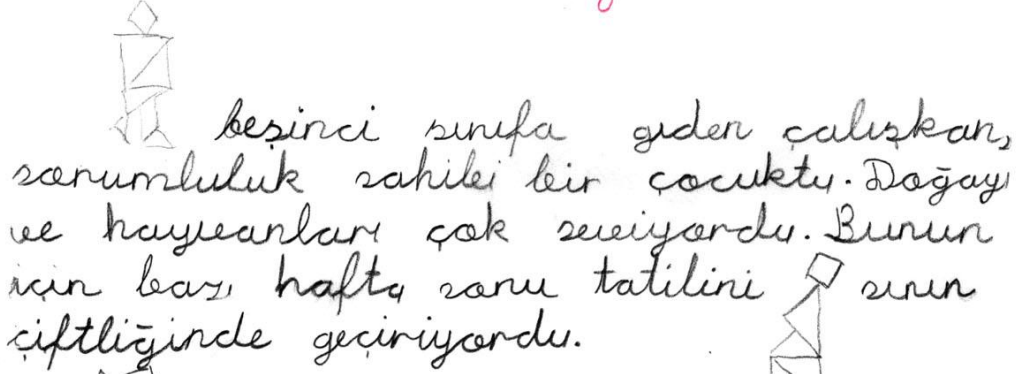 beşinci sınıfa giden çalışkan,
sorumluluk sahibi bir çocuktu. Doğayı
ve hayvanları çok seviyordu. Bunun
için bazı hafta sonu tatilini sının
çiftliğinde geçiriyordu.